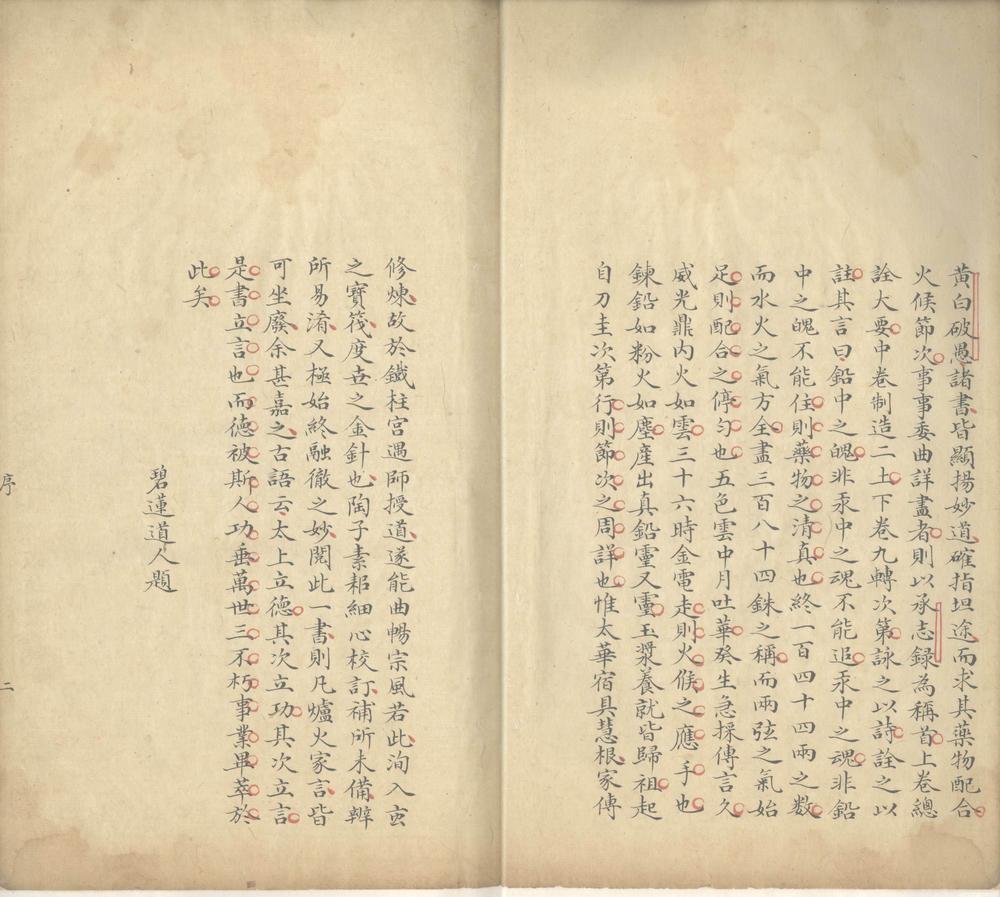 黄白破愚諸書皆顯揚妙道確指坦途而求其藥物配合
火候節次事事委曲詳盡者則以承志録為稱首上卷總
詮大要中卷制造二土下卷九轉次第詠之以詩詮之以
註其言曰鉛中之魄非汞中之魂不能追汞中之魂非鉛
中之魄不能住則藥物之清真也終一百四十四兩之数
而水火之氣方全盡三百八十四銖之稱而兩弦之氣始
足則配合之停匀也五色雲中月吐華癸生急採傳言久
威光鼎内火如雲三十六時金電走則火候之應手也
鍊鉛如粉火如塵産出真鉛靈又靈玉漿養就皆歸祖起
自刀圭次第行則節次之周詳也惟太華宿具慧根家傳
修煉故於鐵柱宮遇師授道遂能曲暢宗風若此洵入室
之寶筏度世之金針也陶子素耜細心校訂補所未備辯
所易淆又極始終融徹之妙閲此一書則凡爐火家言皆
可坐廢余甚嘉之古語云太上立德其次立功其次立言
是書立言也而德被斯人功垂萬世三不朽事業畢萃於
此矣
碧蓮道人題
序
二